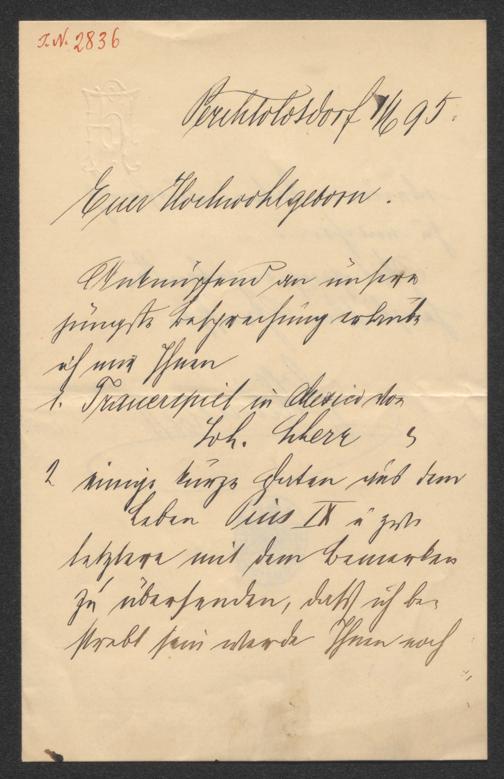 I.N. 2836
Perchtoldsdorf 1/6 95.
Euer Hochwohlgeborn.
Anknüpfend an unsere
jüngste Besprechung erlaube
ich mir Ihnen
1. Trauerspiel in Mexico von
Joh. Scherr
2 einige kurze Daten aus dem
Leben Pius IX u zw.
letztere mit dem Bemerken
zu übersenden, daß ich be-
strebt sein werde Ihnen noch